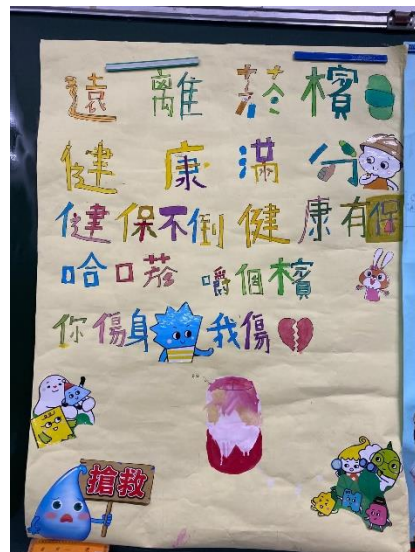 遠離菸檳
健康滿分
健保不倒健康有保
哈口菸 嚼個檳
你傷身我傷
搶救